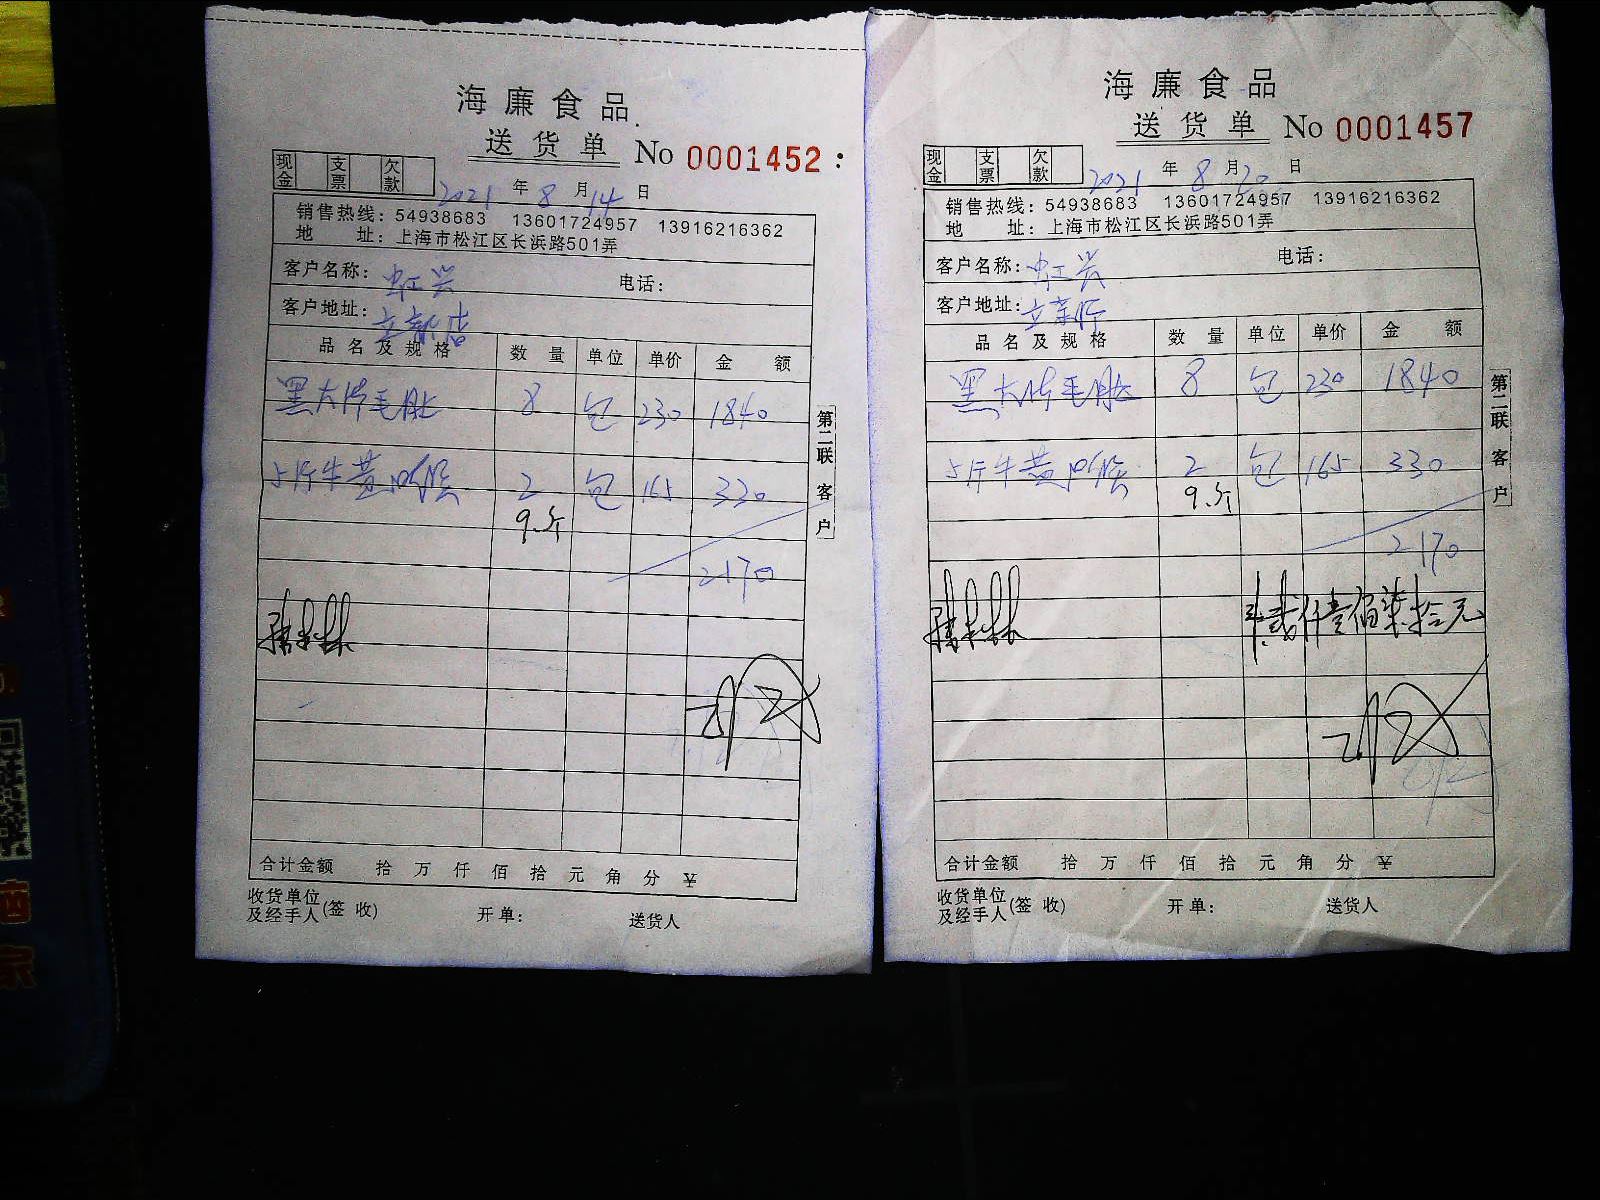 海廉食品
送货单 No 0001452
现金 支票 欠款
2021年8月14日
销售热线: 54938683 13601724957 13916216362
地 址: 上海市松江区长浜路501弄
客户名称: 电话:
客户地址:
品名及规格 数量 单位 单价 金额
黑大片毛肚 8 包 230 1840
5斤牛黄喉 2 包 165 330
9.5斤
2170
第二联 客户
合计金额 拾 万 仟 佰 拾 元 角 分 ¥
收货单位及经手人(签收) 开单: 送货人
海廉食品
送货单 No 0001457
现金 支票 欠款
2021年8月20日
销售热线: 54938683 13601724957 13916216362
地 址: 上海市松江区长浜路501弄
客户名称: 电话:
客户地址:
品名及规格 数量 单位 单价 金额
黑大片毛肚 8 包 230 1840
5斤牛黄喉 2 包 165 330
9.5斤
2170
贰仟壹佰柒拾元
第二联 客户
合计金额 拾 万 仟 佰 拾 元 角 分 ¥
收货单位及经手人(签收) 开单: 送货人